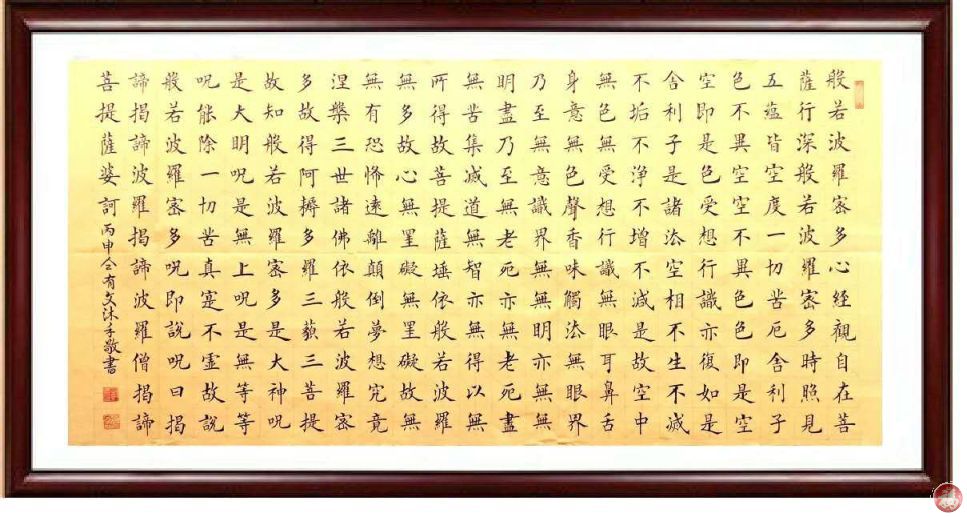 般若波羅密多心經觀自在菩
薩行深般若波羅密多時照見
五蘊皆空度一切苦厄舍利子
色不異空空不異色色即是空
空即是色受想行識亦復如是
舍利子是諸法空相不生不滅
不垢不淨不增不減是故空中
無色無受想行識無眼耳鼻舌
身意無色聲香味觸法無眼界
乃至無意識界無無明亦無無
明盡乃至無老死亦無老死盡
無苦集滅道無智亦無得以無
所得故菩提薩埵依般若波羅
無多故心無罣礙無罣礙故無
無有恐怖遠離顛倒夢想究竟
涅槃三世諸佛依般若波羅密
多故得阿耨多羅三藐三菩提
故知般若波羅密多是大神呪
是大明呪是無上呪是無等等
呪能除一切苦真寔不虛故說
般若波羅密多呪即說呪曰揭
諦揭諦波羅揭諦波羅僧揭諦
菩提薩婆訶
丙申仝有文沐手敬書